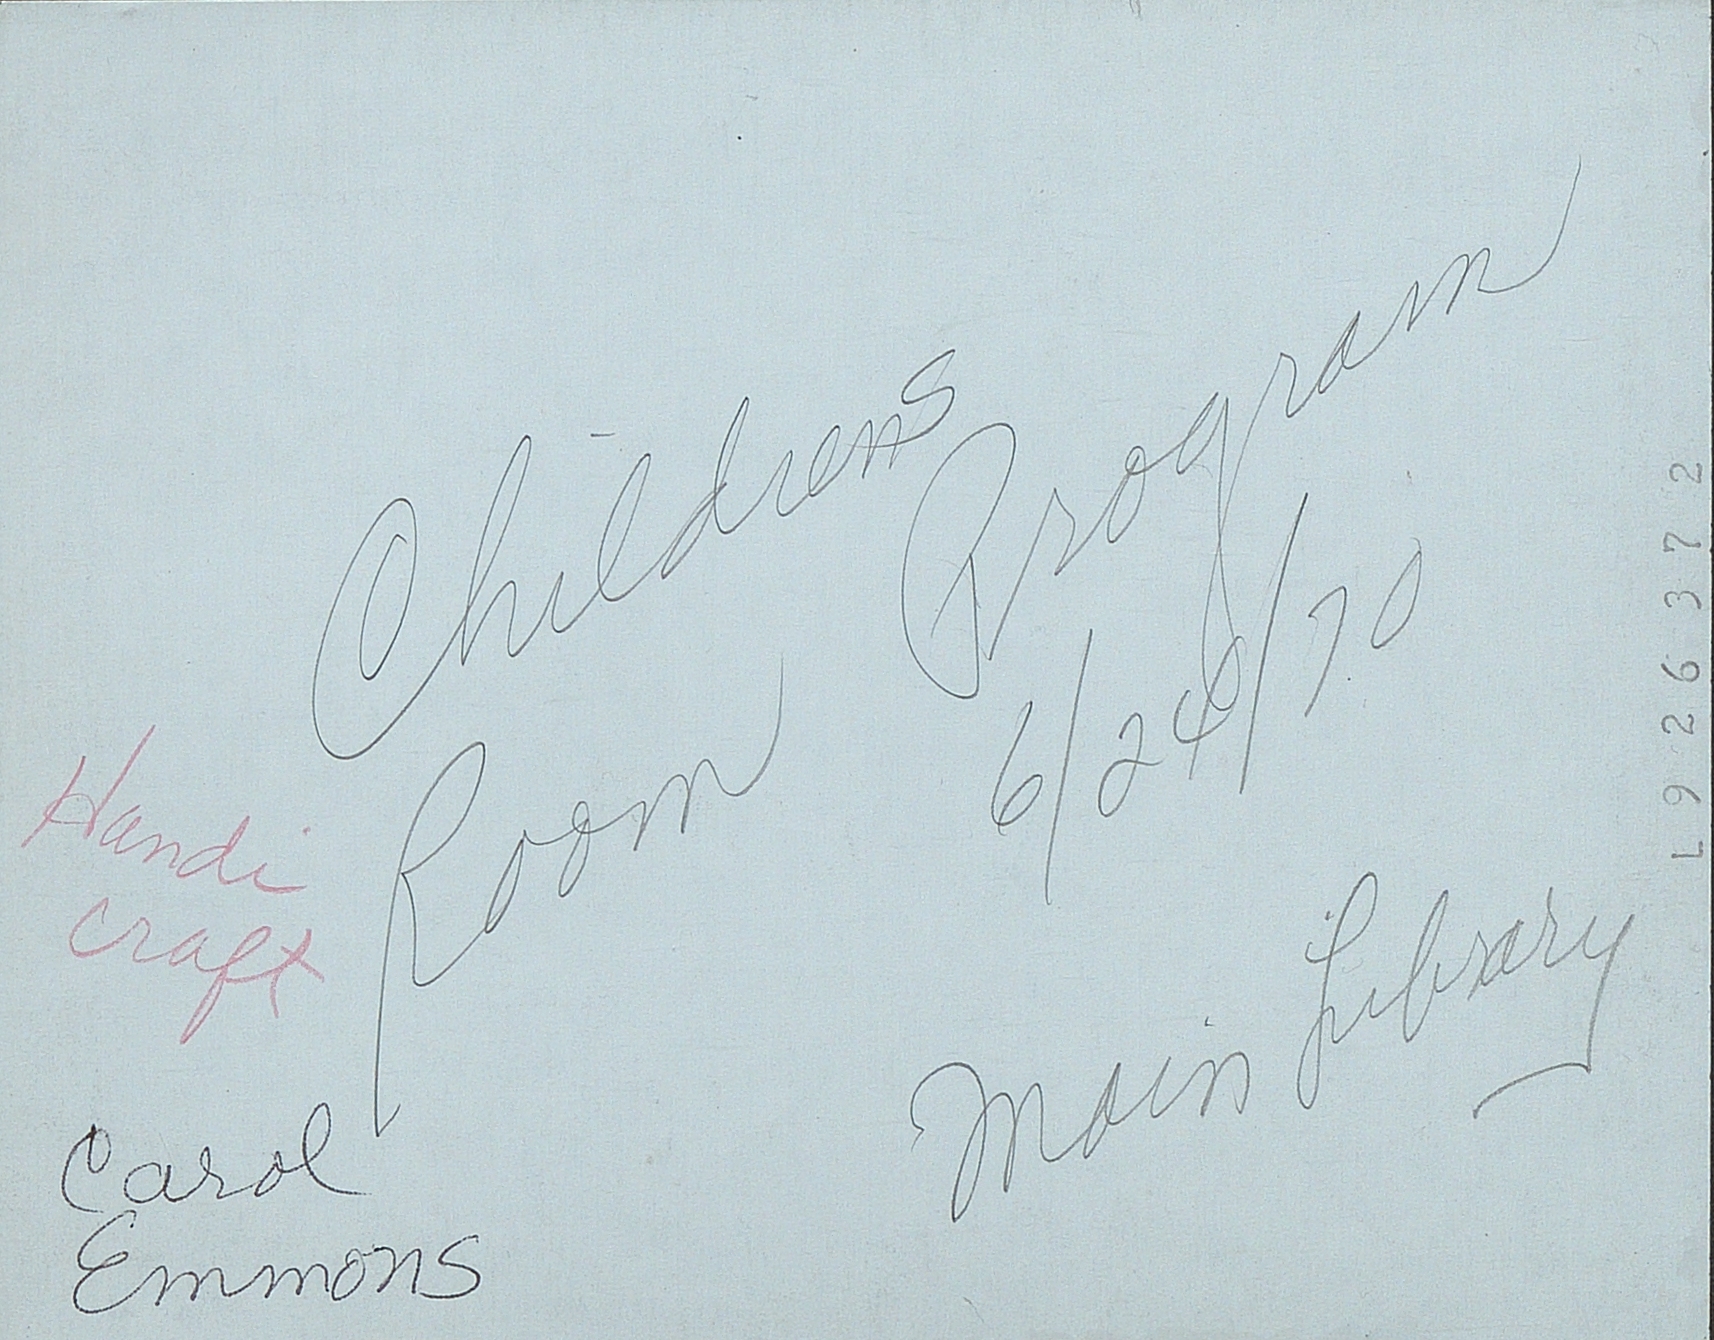 Childrens Program
Room 6/24/70
Handi
craft
Main Library
Carol
Emmons
L926372